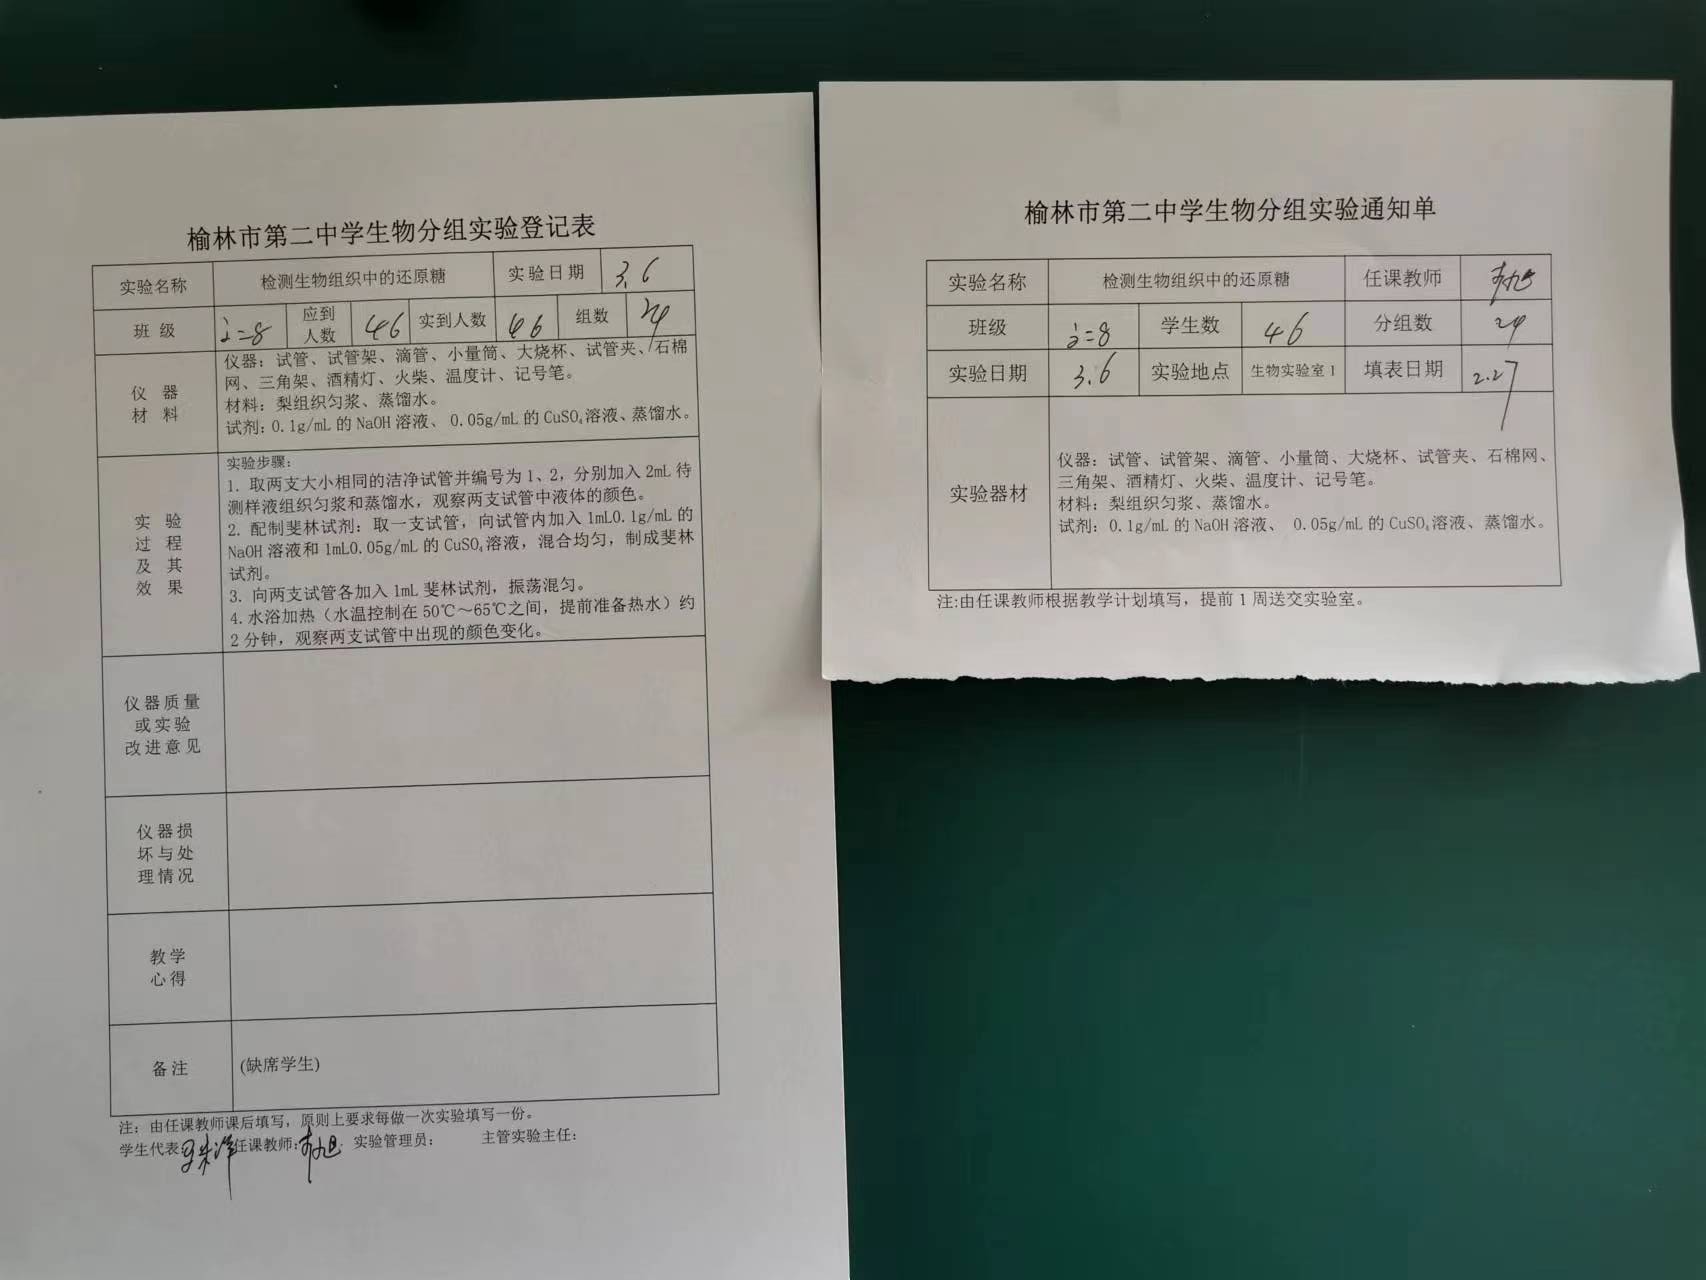 榆林市第二中学生物分组实验登记表
实验名称 检测生物组织中的还原糖 实验日期 3.6
班级 应到人数 46 实到人数 46 组数 24
仪器材料
仪器：试管、试管架、滴管、小量筒、大烧杯、试管夹、石棉
网、三角架、酒精灯、火柴、温度计、记号笔。
材料：梨组织匀浆、蒸馏水。
试剂：0.1g/mL的NaOH溶液、 0.05g/mL的CuSO₄溶液、蒸馏水。
实验过程及其效果
实验步骤：
1. 取两支大小相同的洁净试管并编号为1、2，分别加入2mL待
测样液组织匀浆和蒸馏水，观察两支试管中液体的颜色。
2. 配制斐林试剂：取一支试管，向试管内加入1mL0.1g/mL的
NaOH溶液和1mL0.05g/mL的CuSO₄溶液，混合均匀，制成斐林
试剂。
3. 向两支试管各加入1mL斐林试剂，振荡混匀。
4. 水浴加热（水温控制在50℃～65℃之间，提前准备热水）约
2分钟，观察两支试管中出现的颜色变化。
仪器质量
或实验
改进意见
仪器损
坏与处
理情况
教学
心得
备注 (缺席学生)
注：由任课教师课后填写，原则上要求每做一次实验填写一份。
学生代表: 任课教师: 实验管理员： 主管实验主任：
榆林市第二中学生物分组实验通知单
实验名称 检测生物组织中的还原糖 任课教师
班级 学生数 46 分组数 24
实验日期 3.6 实验地点 生物实验室1 填表日期 2.27
实验器材
仪器：试管、试管架、滴管、小量筒、大烧杯、试管夹、石棉网、
三角架、酒精灯、火柴、温度计、记号笔。
材料：梨组织匀浆、蒸馏水。
试剂：0.1g/mL的NaOH溶液、 0.05g/mL的CuSO₄溶液、蒸馏水。
注:由任课教师根据教学计划填写，提前1周送交实验室。